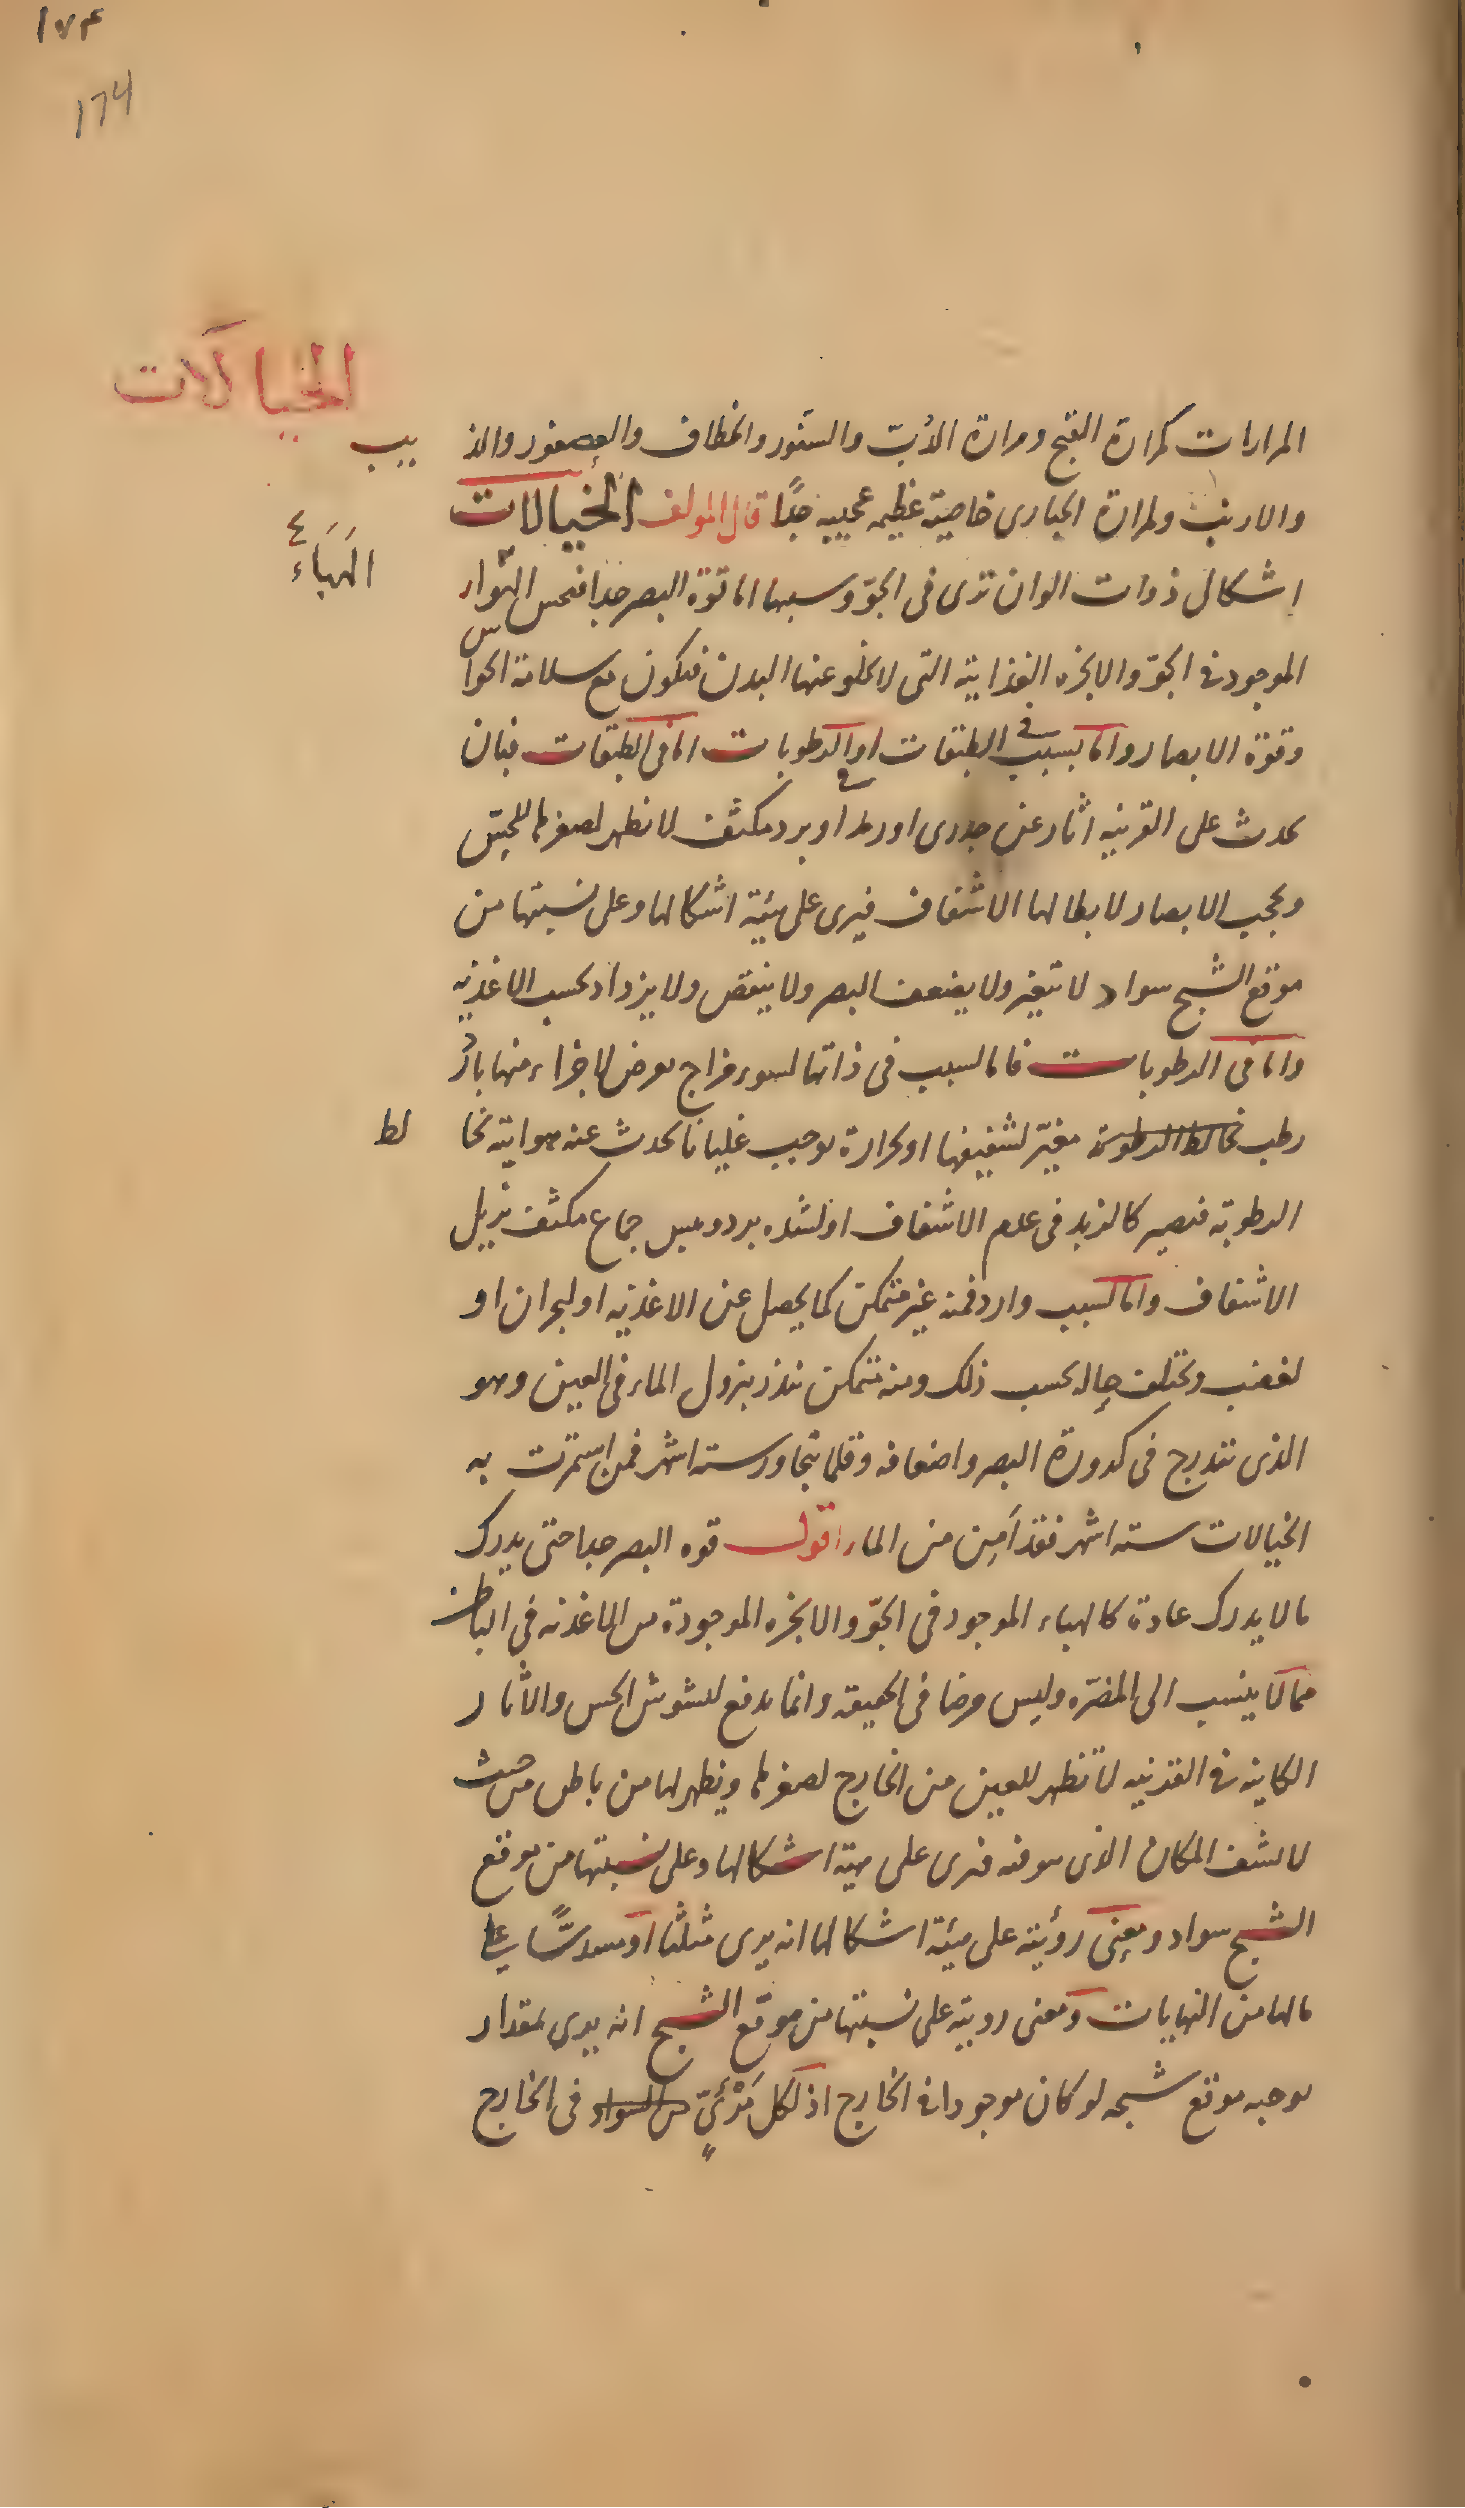 ١٧٤
174
الخيالات
المرارات كمرارة القبج ومرارة الدُبّ والسنّور والخطاف والعصفور والذ
يب
والارنب ولمرارة الحبارى خاصية عظيمه عجيبه جدًا قال المولف الخيالات
الهَبَاء
اشكال ذوات الوان ترى فى الجوّ وسببها اما قوة البصر جدا فيحس
الموجود فى الجوّ والابخره الغذاييه التى لا يخلو عنها البدن فيكون مع سلامة الحوا
س
وقوة الابصار واما بسبب فى الطبقات او فى الرطوبات اما فى الطبقات فبان
يحدث على القرنيه اثار عن جدرى او رمد او برد مكثف لا تظهر لصغرها للحسّ
ويحجب الابصار لابطالها الاشفاف فيرى على هيئة اشكالها وعلى نسبتها من
موقع الشبح سواد لا يتغير ولا يضعف البصر ولا ينقص ولا يزداد بحسب الاغذيه
واما فى الرطوبات فاما لسبب فى ذاتها لسوء مزاج يعرض لاجزاء منها بارد
رطب يخالط الرطوبة مغيّر لشفيفها او حرارة توجب غليانا يحدث عنه هوايته تخا
لط
الرطوبة فتصير كالزبد فى عدم الاشفاف او لشده برد ويبس جماع مكثف يزيل
الاشفاف واما لسبب وارد فمنه غير متمكن كما يحصل عن الاغذيه او لبحران او
لغضب ويختلف حاله بحسب ذلك ومنه متمكن ينذر بنزول الماء فى العين وهو
الذى يتدرج فى كدورة البصر واضعافه وقلما يتجاوز سته اشهر فمن استمرت به
الخيالات سته اشهر فقد اَمِن من الماء اقول قوه البصر جدا حتى يدرك
ما لا يدرك عادة كالهباء الموجود فى الجوّ والابخره الموجودة من الاغذيه فى الباطن
مما لا ينسب الى المضرّه وليس مرضا فى الحقيقه وانما يدفع لتشوش الحس والآثار
الكاينه فى القرنيه لا تظهر للعين من الخارج لصغرها ويظهر لها من باطن من حيث
لا تشف المكان الذى هو فيه فيرى على هيئة اشكالها وعلى نسبتها من موقع
الشبح سواد ومعنى رؤيته على هيئة اشكالها انه يرى مثلثًا او مسدسًا على
مالها من النهايات ومعنى رويته على نسبتها من موقع الشبح انه يرى بمقدار
يوجبه موقع شبحه لو كان موجودا فى الخارج اذ لكل مَرْئيّ من السواد فى الخارج